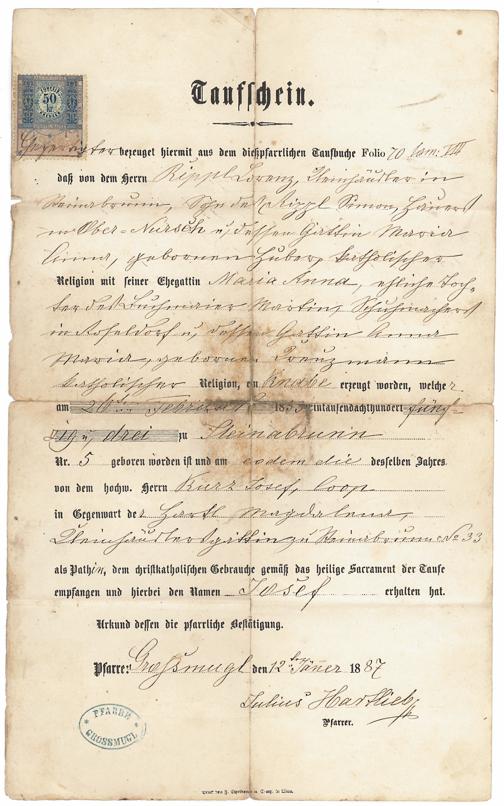 50
kr
Taufschein.
Gefertigter bezeuget hiermit aus dem dießpfarrlichen Taufbuche Folio 70 tom: VIII
daß von dem Herrn Rippl Lorenz, Kleinhäusler in
Steinabrunn, Sohn des Rippl Simon, Hauers
in Ober-Nursch u. dessen Gattin Maria
Anna, gebornen Huber, katholischer
Religion mit seiner Ehegattin Maria Anna, ehliche Toch-
ter des Martin, Schuhmachers
in Roseldorf u. dessen Gattin Anna
Maria, geborne Kreuzmann
katholischer Religion, ein Knabe erzeugt worden, welcher
am 26ten Februar 1853 eintausendachthundert fünf-
zig u. drei zu Steinabrunn
Nr. 5 geboren worden ist und am eodem die desselben Jahres
von dem hochw. Herrn Kurz Josef, Coop
in Gegenwart der Hartl Magdalena,
Kleinhäuslersgattin zu Steinabrunn No 33
als Pathin, dem christkatholischen Gebrauche gemäß das heilige Sacrament der Taufe
empfangen und hierbei den Namen Josef erhalten hat.
Urkund dessen die pfarrliche Bestätigung.
Pfarre: Grossmugl den 12ten Jäner 1887
Julius Hartlieb
Pfarrer.
PFARRE
GROSSMUGL